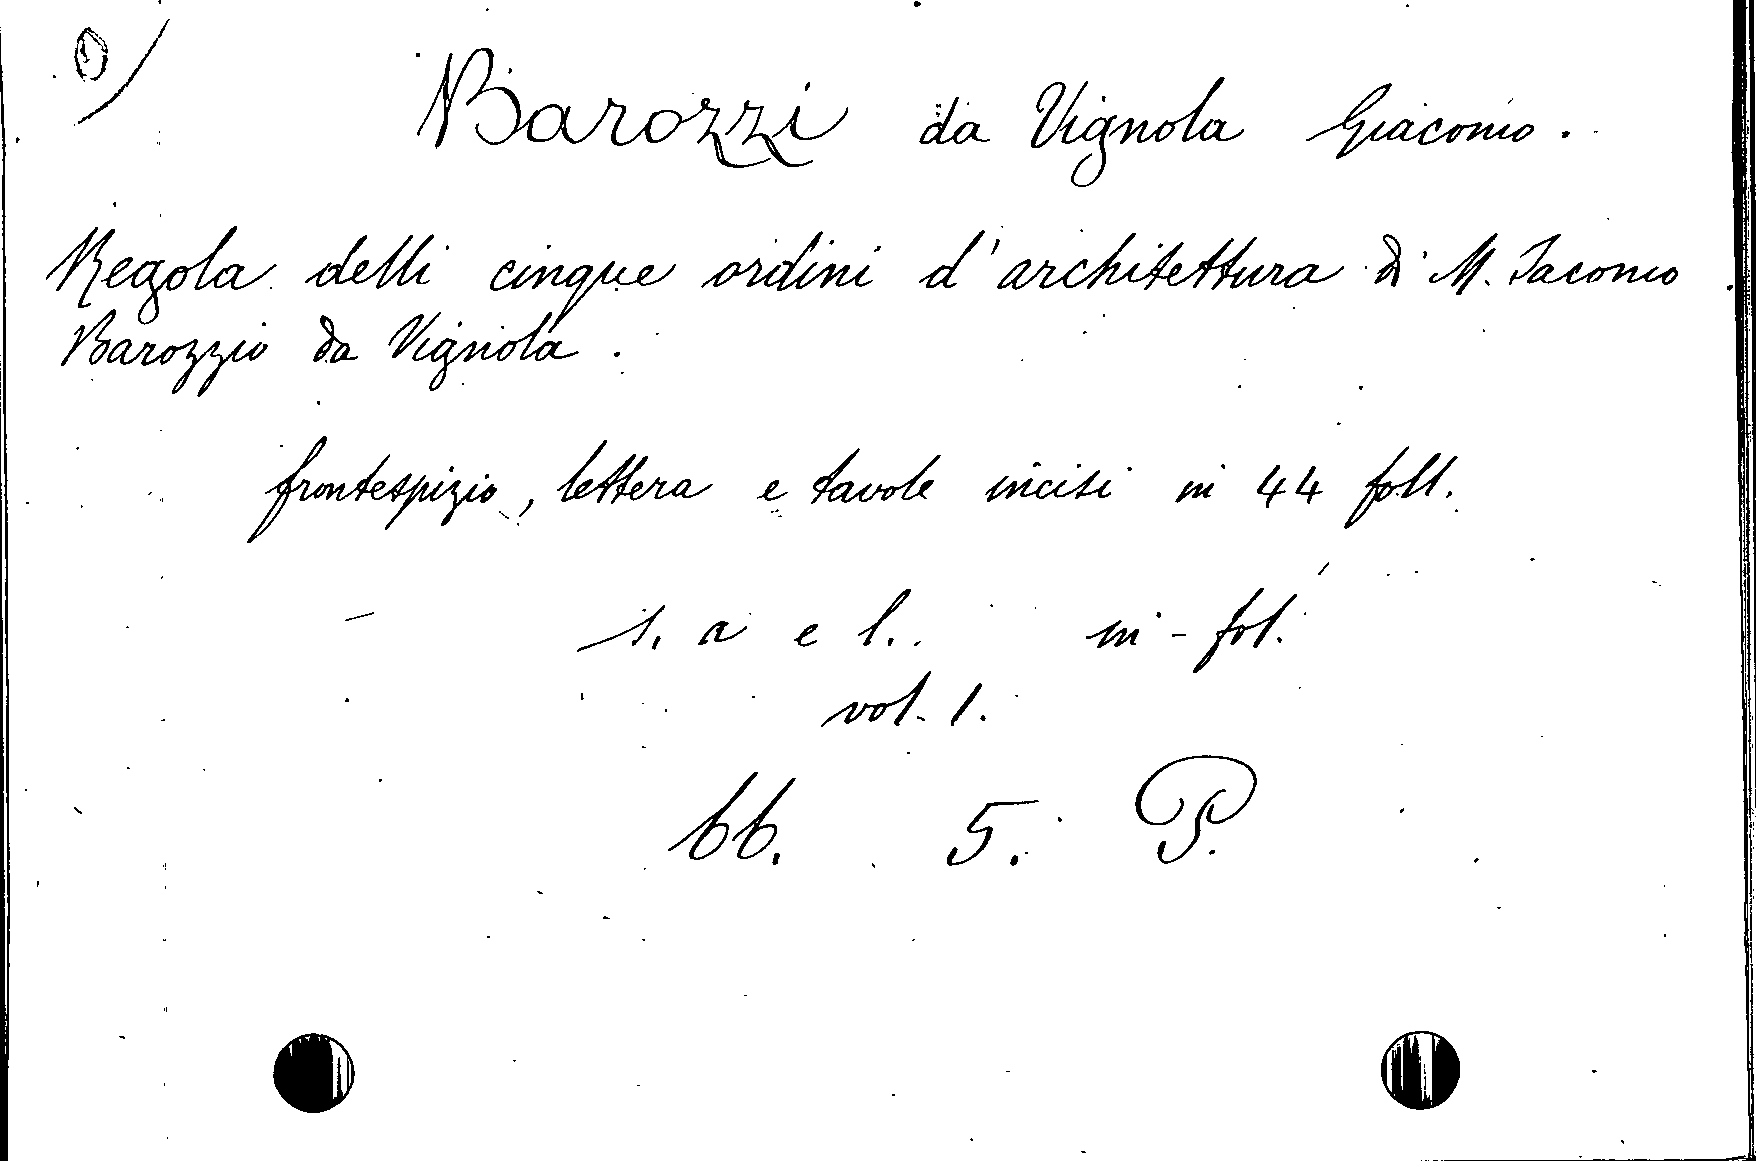 Barozzi da Vignola Giacomo.
Regola delli cinque ordini d'architettura di M. Iacomo
Barozzio da Vignola.
frontespizio, lettera e tavole incisi in 44 foll.
s. a e l. in-fol.
vol. 1.
66. 5. P.